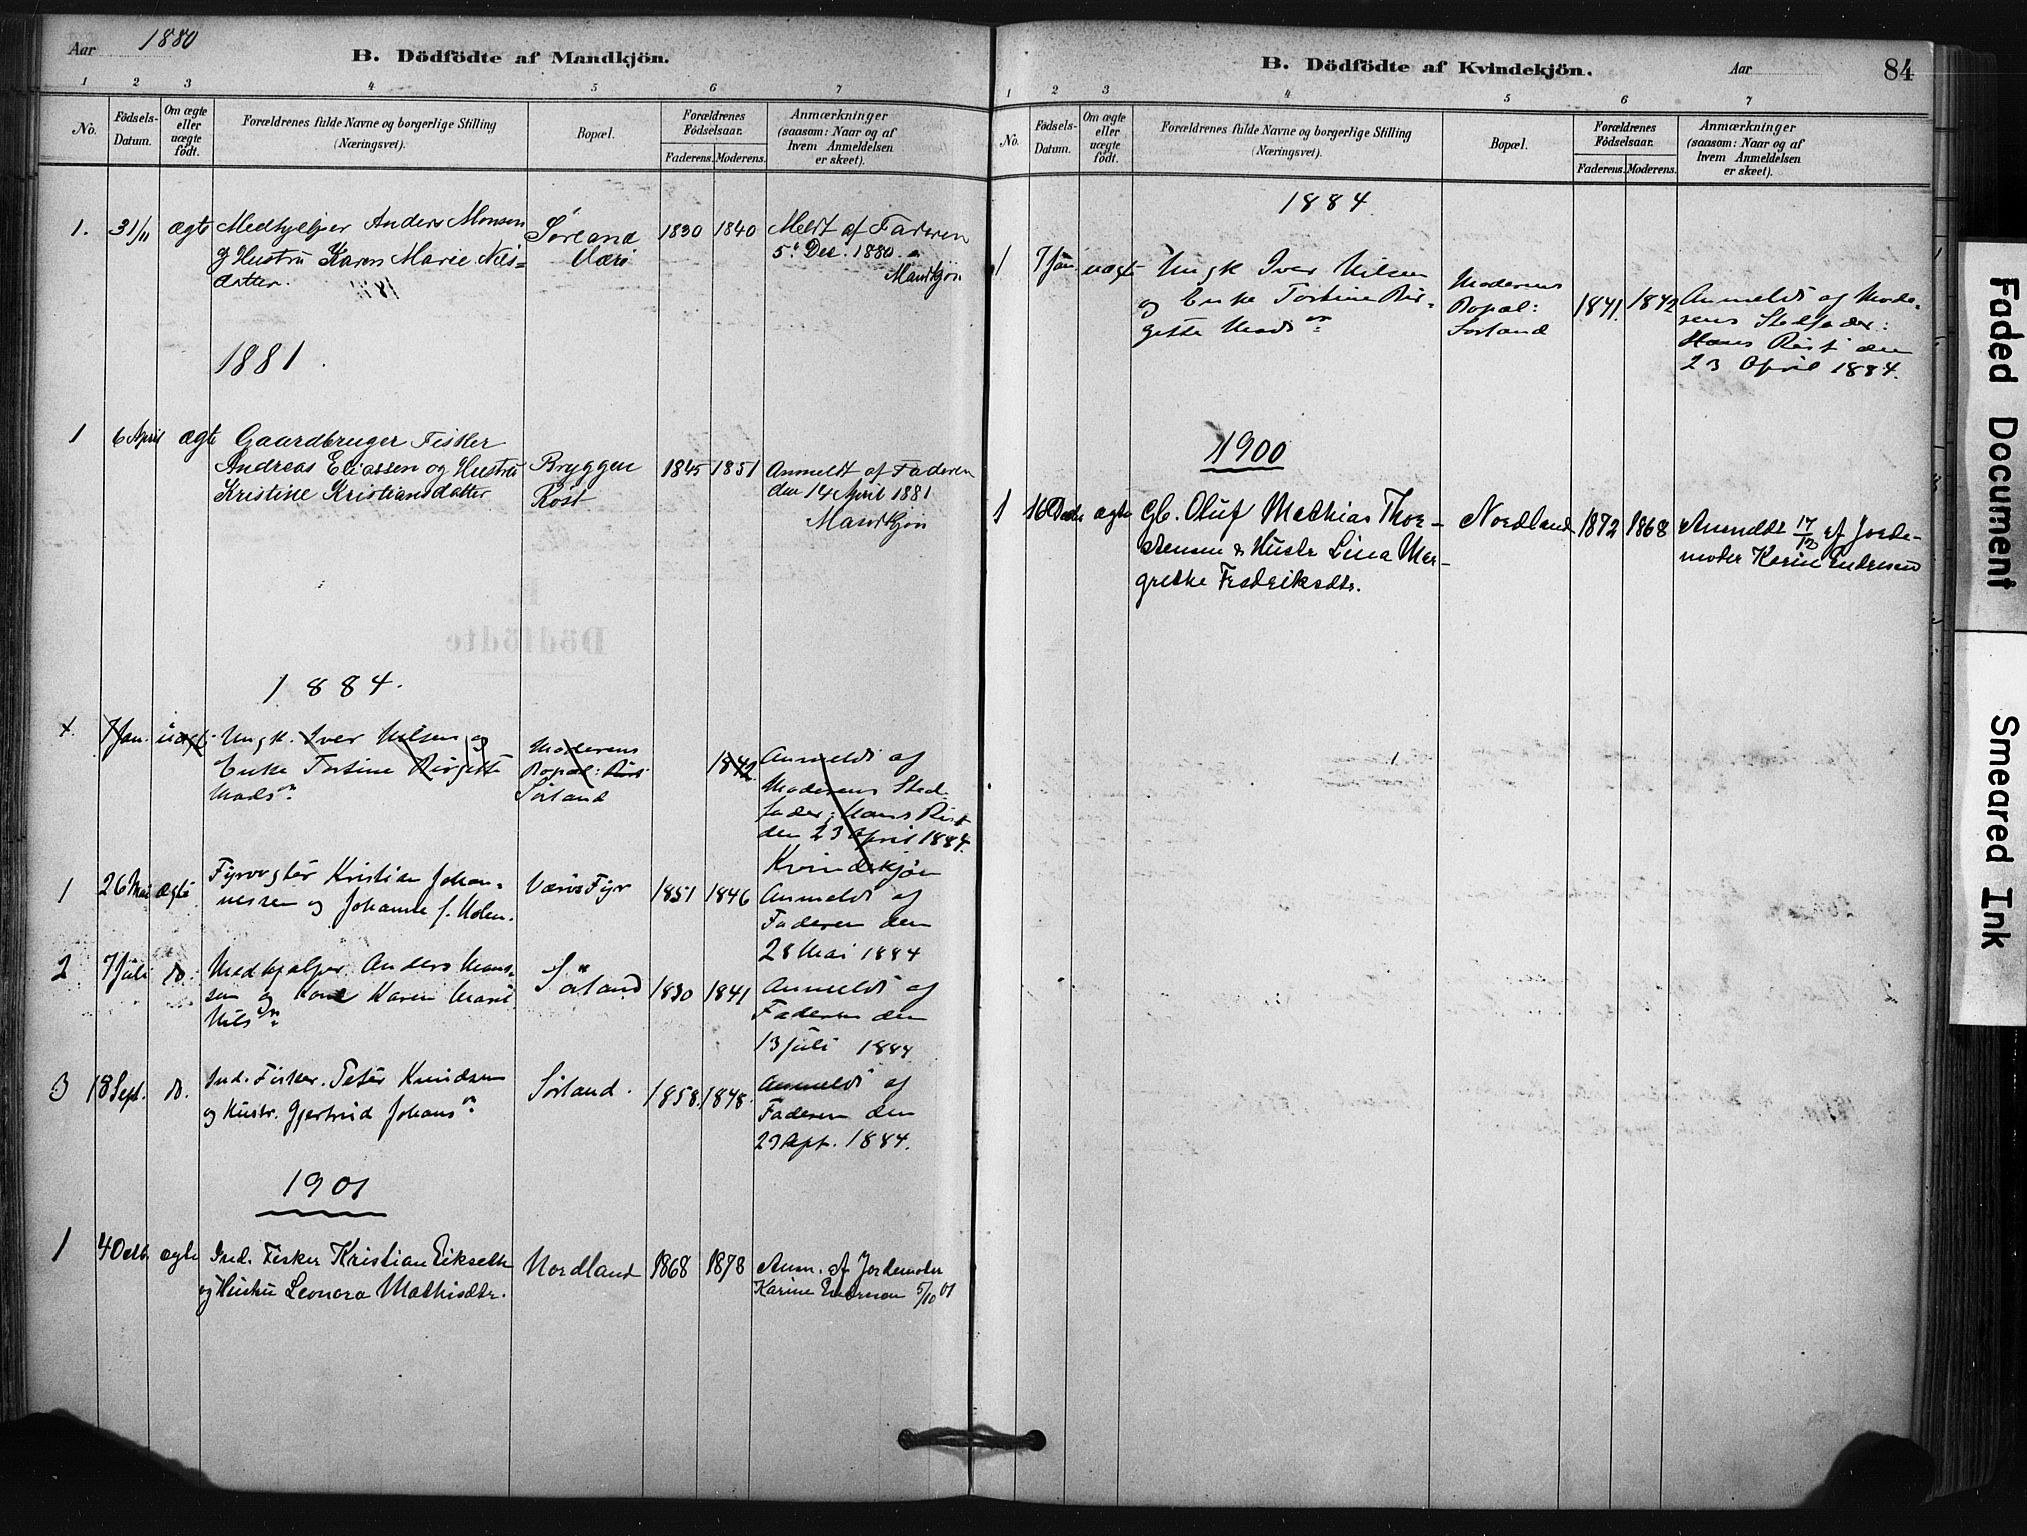 Aar 1880
B. Dödfödte af Mandkjön.
1 2 3 4 5 6 7
No.
Födsels-
Datum.
Om ægte
eller
uægte
født.
Forældrenes fulde Navne og borgerlige Stilling
(Næringsvei).
Bopæl.
Forældrenes
Födselsaar.
Faderens. Moderens.
Anmærkninger
(saasom: Naar og af
hvem Anmeldelsen
er skeet).
1. 31/11 ægte Medhjelper Anders Monsen Sørland 1830 1840 Meldt af Faderen
og Hustru Karen Marie Nils= Værø 5t Dec. 1880
datter. Mandkjøn
1881
1 6 April ægte Gaardbruger Fisker
Andreas Eliassen og Hustru Bryggen 1845 1851 Anmeldt af Faderen
Kristine Kristiansdatter Röst den 14 April 1881
Mandkjøn
1884.
7 Jan. uægte Ungk. Iver Nilsen og
Enke Tortine Birgitte
Mads
Moderens
Bopæl:
Sörland
1842
Anmeldt af
Moderens Sted
fader: Hans Rist
den 23 April 1884.
Kvindekjøn
1 26 Mai ægte Fyrvogter Kristian Johan-
nessen og Johanne f. Holm.
Værö Fyr 1851 1846
Anmeldt af
Faderen den
28 Mai 1884
2 7 Juli do. Medhjælper Anders Mons-
sen og Kone Karen Marie
Nils
Sörland 1830 1841
Anmeldt af
Faderen den
13 Juli 1884
3 18 Sept. do. Ind. Fisker. Peter Knudsen
og Hustr. Gjertrud Johans
Sörland. 1858. 1848.
Anmeldt af
Faderen den
23 Sept. 1884.
1901
1 4 Octb. ægte Ind. Fisker Kristian Eikseth
og Hustru Leonora Mathisdtr.
Nordland 1868 1878
Anm. af Jordemoder
Karine Endresen 5/10 01
B. Dödfödte af Kvindekjön. Aar 84
1 2 3 4 5 6 7
No.
Födsels-
Datum.
Om ægte
eller
uægte
födt.
Forældrenes fulde Navne og borgerlige Stilling
(Næringsvei).
Bopæl.
Forældrenes
Födselsaar.
Faderens. Moderens.
Anmærkninger
(saasom: Naar og af
hvem Anmeldelsen
er skeet).
1884.
1 7 Jan uægt Ungk Iver Nilsen
og Enke Tortine Bir-
gitte Mads
Moderens
Bopæl:
Sørland
1841. 1842
Anmeldt af Mode-
rens Stedfader:
Hans Rist den
23 April 1884.
1900
1 16 Decbr ægte Gb. Oluf Mathias Thor-
stensen & Hustr Lina Mar-
grethe Fredriksdtr.
Nordland 1872 1868
Anmeldt 17/12 af Jorde-
moder Karine Endresen
Faded Document
Smeared Ink